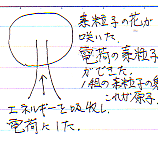 素粒子の花が
咲いた。
電荷の素粒子
ができた。
1組の素粒子の
これが原子。
エネルギーを吸収し
電荷にした。